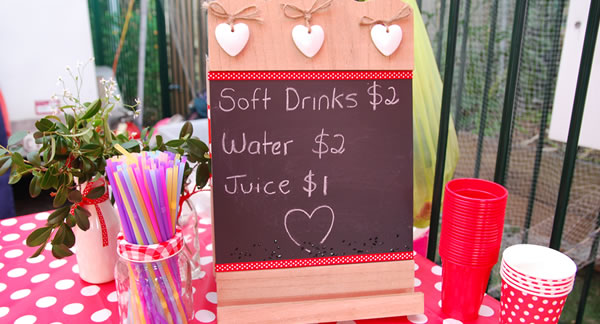 Soft Drinks $2
Water $2
Juice $1